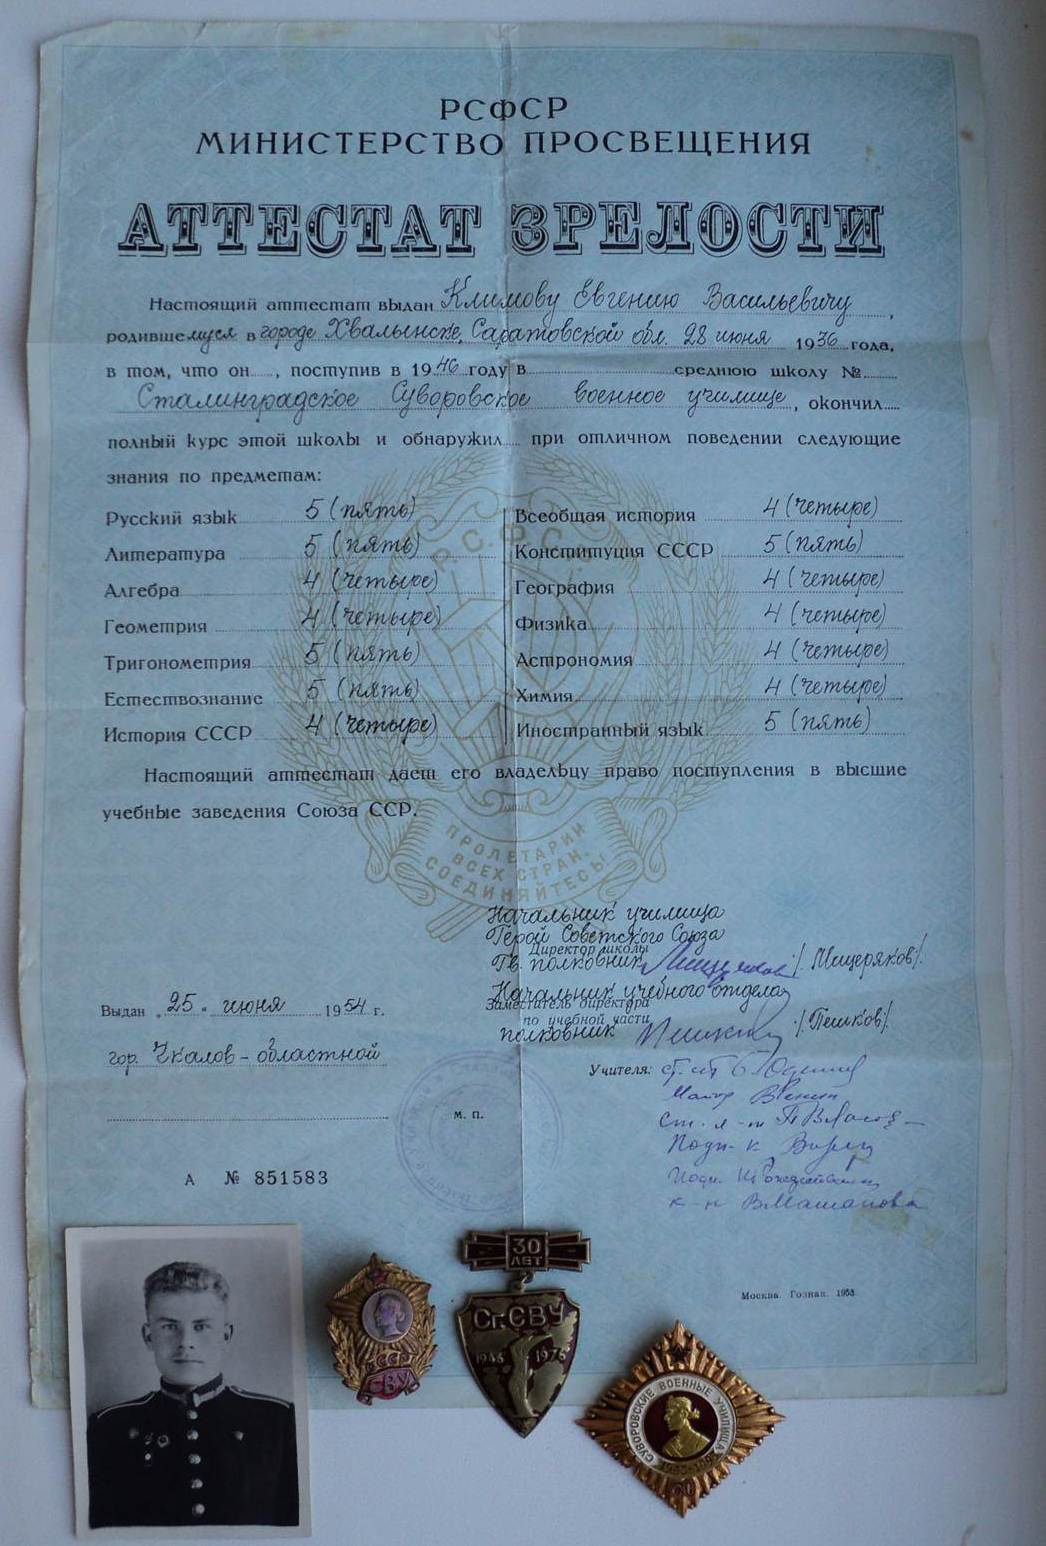 РСФСР
МИНИСТЕРСТВО ПРОСВЕЩЕНИЯ
АТТЕСТАТ ЗРЕЛОСТИ
Настоящий аттестат выдан Климову Евгению Васильевичу,
родившемуся в городе Хвалынске, Саратовской обл. 28 июня 1936 года,
в том, что он, поступив в 1946 году в среднюю школу №
Сталинградское Суворовское военное училище, окончил
полный курс этой школы и обнаружил при отличном поведении следующие
знания по предметам:
Русский язык 5 (пять)
Литература 5 (пять)
Алгебра 4 (четыре)
Геометрия 4 (четыре)
Тригонометрия 5 (пять)
Естествознание 5 (пять)
История СССР 4 (четыре)
Всеобщая история 4 (четыре)
Конституция СССР 5 (пять)
География 4 (четыре)
Физика 4 (четыре)
Астрономия 4 (четыре)
Химия 4 (четыре)
Иностранный язык 5 (пять)
Р.С.Ф.С.Р.
Настоящий аттестат дает его владельцу право поступления в высшие
учебные заведения Союза ССР.
ПРОЛЕТАРИИ
ВСЕХ СТРАН,
СОЕДИНЯЙТЕСЬ!
Начальник училища
Герой Советского Союза
Директор школы
Гв. полковник /Мещеряков/.
Начальник учебного отдела
Заместитель директора
по учебной части
полковник /Пешков/.
Выдан „25" июня 1954 г.
гор. Чкалов-областной
Учителя:
Майор
Ст. л-т
Подп-к
Подп.
к-н
М. П.
А № 851583
Москва. Гознак. 1953
30
ЛЕТ
Ст.СВУ
1946 1976
СССР
СВУ
СУВОРОВСКИЕ ВОЕННЫЕ УЧИЛИЩА